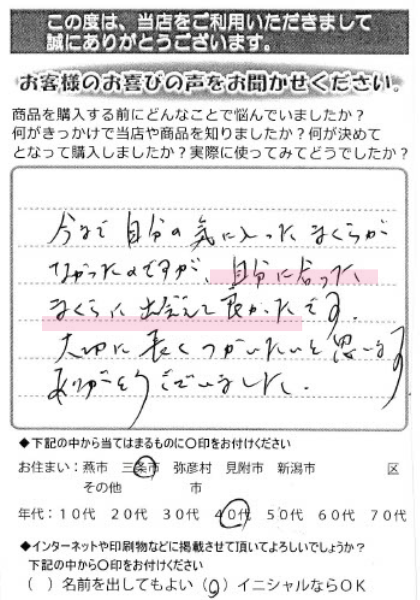 この度は、当店をご利用いただきまして
誠にありがとうございます。
お客様のお喜びの声をお聞かせください。
商品を購入する前にどんなことで悩んでいましたか？
何がきっかけで当店や商品を知りましたか？何が決めて
となって購入しましたか？実際に使ってみてどうでしたか？
今まで自分の気に入ったまくらが
なかったのですが、自分に合った
まくらに出会えて良かったです。
大切に長くつかいたいと思います
ありがとうございました。
◆下記の中から当てはまるものに〇印をお付けください
お住まい：燕市 三条市 弥彦村 見附市 新潟市 区
その他 市
年代：１０代 ２０代 ３０代 ４０代 ５０代 ６０代 ７０代
◆インターネットや印刷物などに掲載させて頂いてよろしいでしょうか？
下記の中から〇印をお付けください
（ ）名前を出してもよい（○）イニシャルならＯＫ